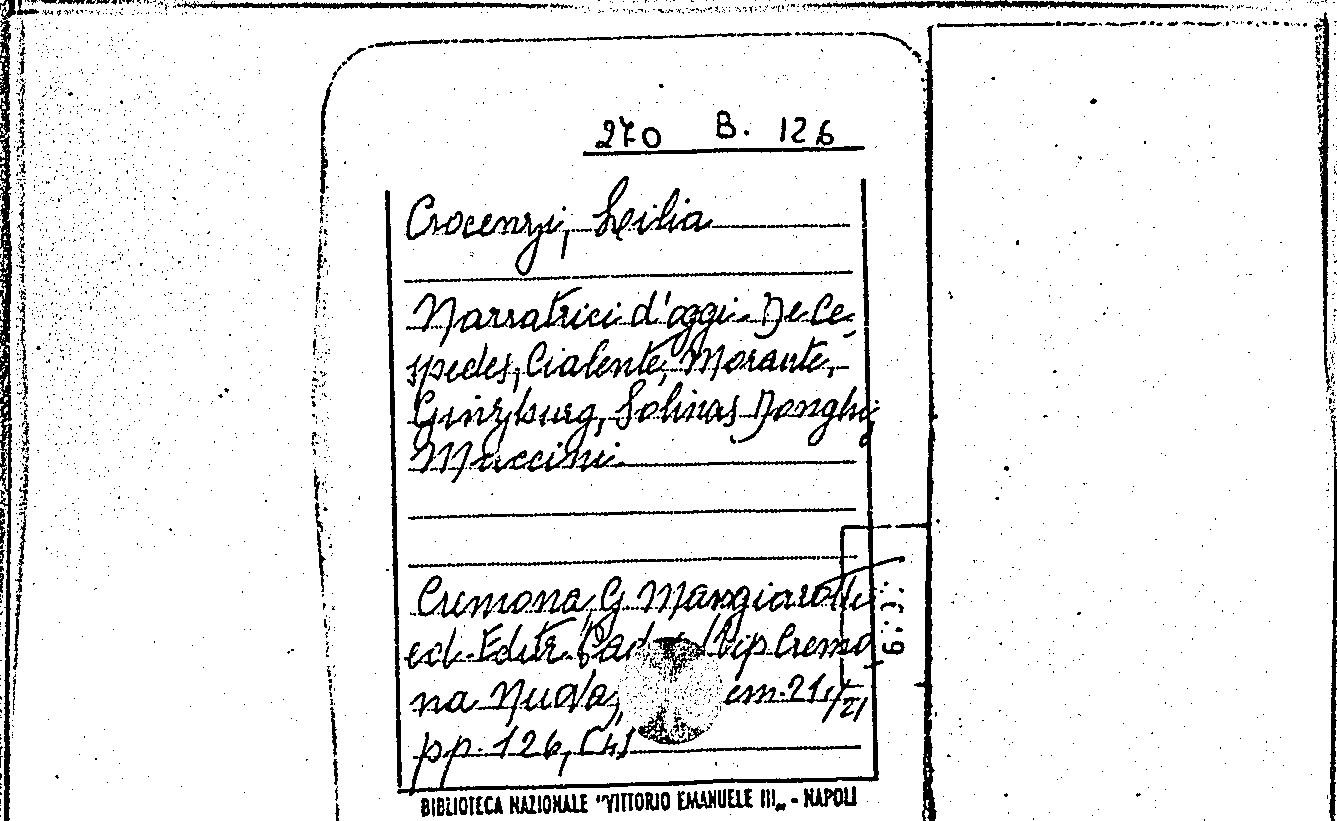 270 B. 126
Crocenzi, Lilia
Narratrici d'oggi. De Ce-
spedes, Cialente, Morante,
Ginzburg, Solinas Donghi,
Muccini.
Cremona, G. Mangiarotti
ed. Editr. Padus (Tip. Cremo
na Nuova, cm. 21,
pp. 126,
BIBLIOTECA NAZIONALE "VITTORIO EMANUELE III„ - NAPOLI